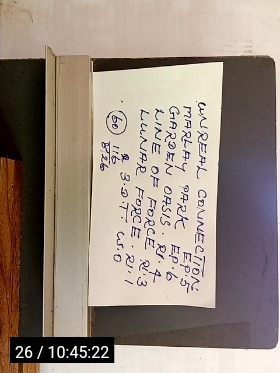 UNREAL CONNECTION EP.5
MARLAY PARK EP.6
GARDEN OASIS. RI.4
LINE OF FORCE RI.3
LUNAR FORCE. RI.1
3.0 T. W.O
60 116
26 / 10:45:22